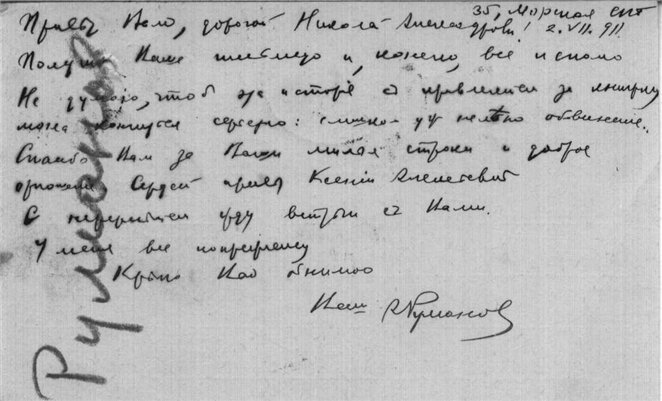 35, Морская СПБ
2. VII. 911.
Привет Вам, дорогой Николай Александрович!
Получил Ваше письмо и, конечно, все исполню
Не думаю, чтоб эта история с
может кончится серьезно: слишком уж нелѣпо обвинение.
Спасибо Вам за Ваши милые строки и доброе
отношение. Сердеч привет Ксении Алексеевне
С нетерпением жду встречи с Вами.
У меня все попрежнему
Крепко Вас обнимаю
Ваш А Руманов
Руманов